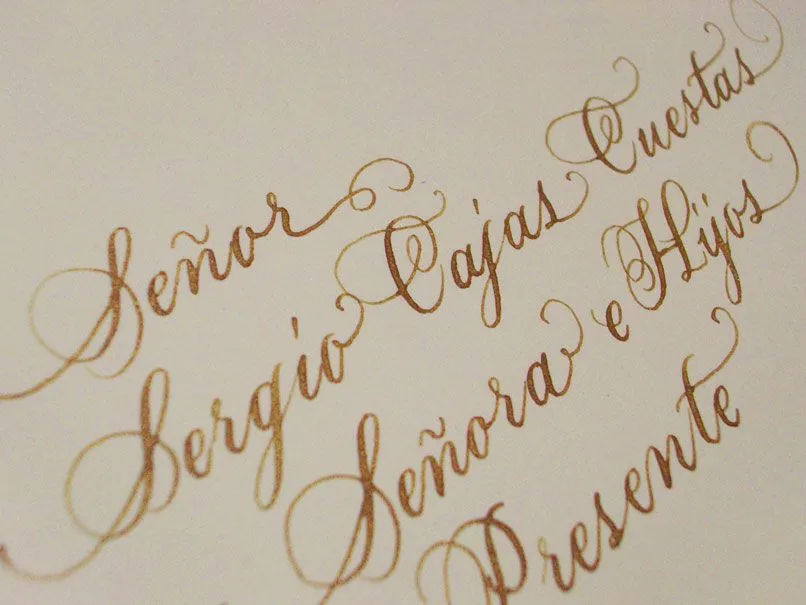 Señor
Sergio Cajas Cuestas
Señora e Hijos
Presente